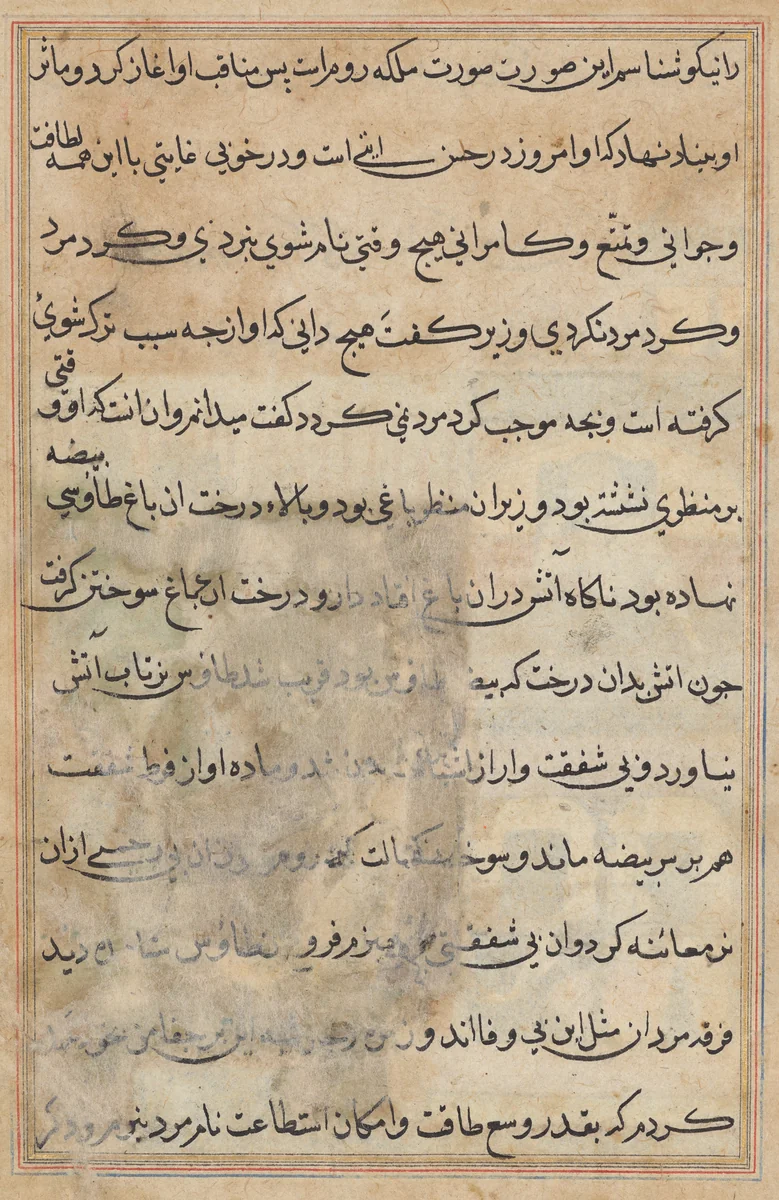 را نیکو شناسم این صورت صورت ملکه روم است پس مناقب او اغاز کرد و ماثر
او بنیاد نهاد که او امروز در حسن ایتی است و در خوبی غایتی با این همه لطافت
و جوانی و تمتّع و کامرانی هیچ وقتی نام شوی نبرد ی و کرد مرد
و کرد مرد نکردی وزیر کفت هیچ دانی که او از جه سبب ترک شویٔ
کرفته است و بجه موجب کرد مرد نمی کردد کفت میدانم و ان انست که او وقتی
بر منظوی نشسته بود و زیر ان منظر باغی بود و بالاء درخت ان باغ طاوسی بیضه
نهاده بود ناکاه آتش در ان باغ افتاد و درخت ان باغ سوختن کرفت
جون اتش بدان درخت که بیضه طاوس بود قریب شد طاوس نر تاب آتش
نیاورد و بی شفقت وار از بیرون شد و ماده او از فرط شفقت
هم بر سر بیضه ماند و سوخته ملکه روم بی رحمی از ان
نر معائنه کرد و ان بی شفقتی طاوس دید
فرقه مردان مثل این بی وفا اند و من بر خود
کردم که بقدر وسع طاقت و امکان استطاعت نام مرد نبرم و